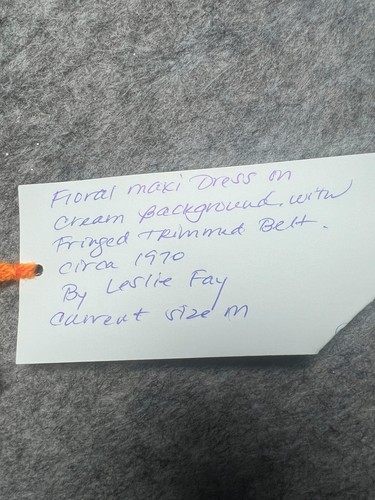 Floral maxi Dress on
Cream Background, with
Fringed Trimmed Belt.
circa 1970
By Leslie Fay
Current size m